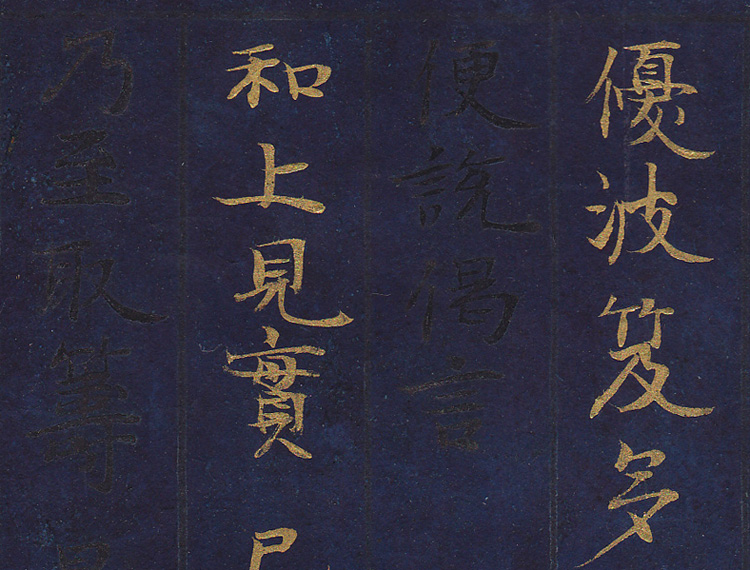 優波笈多
便説偈言
和上見實
乃至取籌